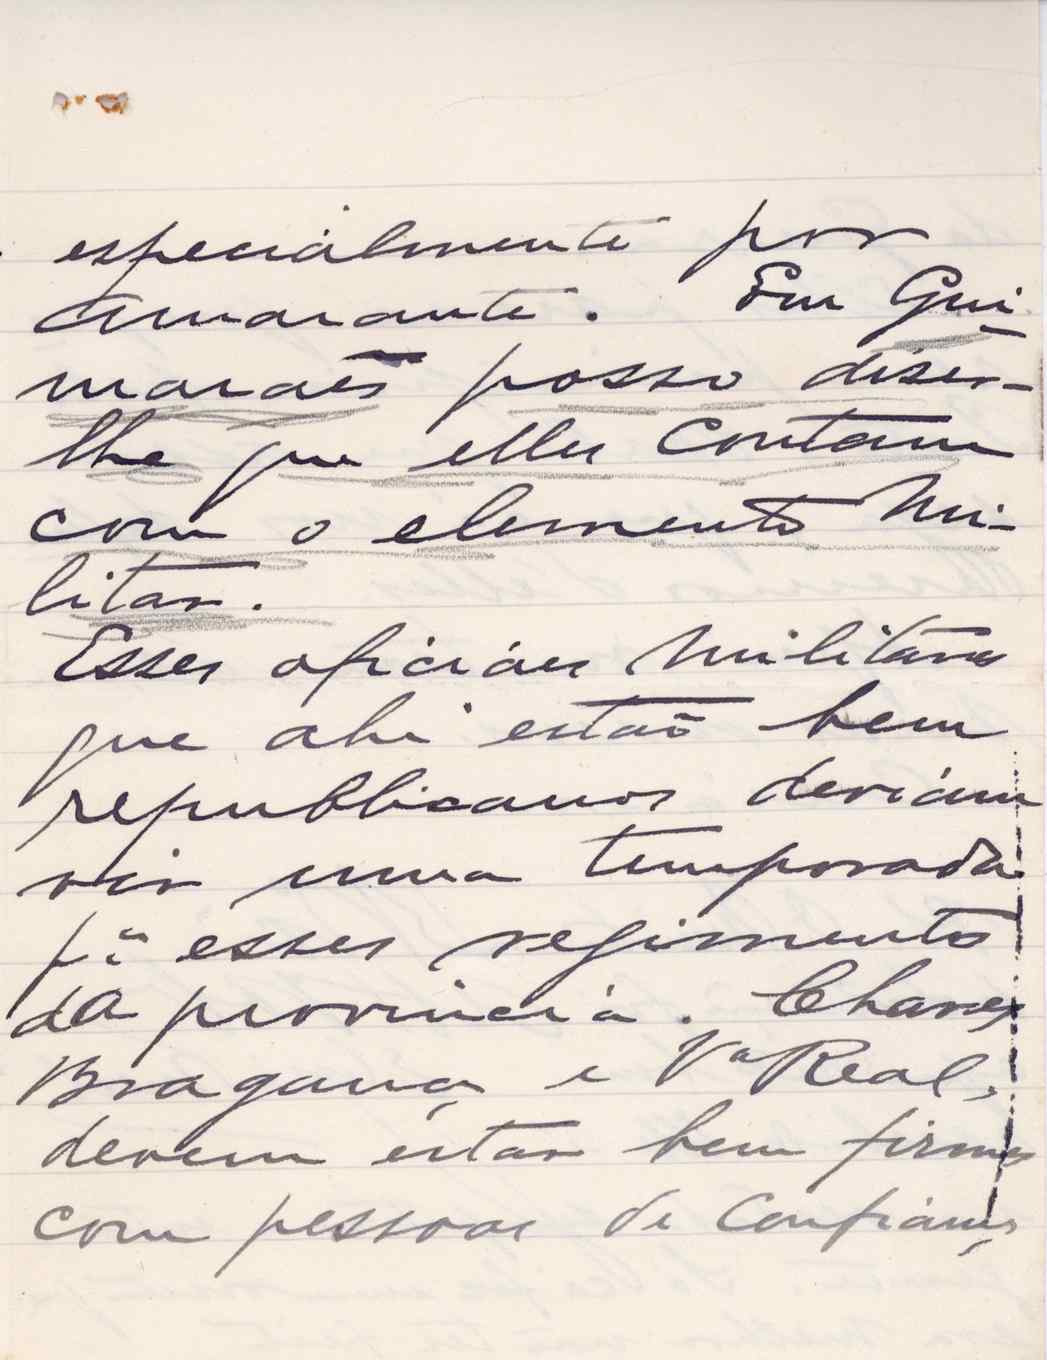 especialmente por
Amarante. Em Gui-
marães posso diser-
lhe que elles contam
com o elemento mi-
litar.
Esses oficiáes militares
que ahi estão bem
republicanos deviám
vir uma temporada
pª esses regimento
da provincia. Chaves
Bragança e Vª Real,
devem estar bem firmes
com pessoas de confiança